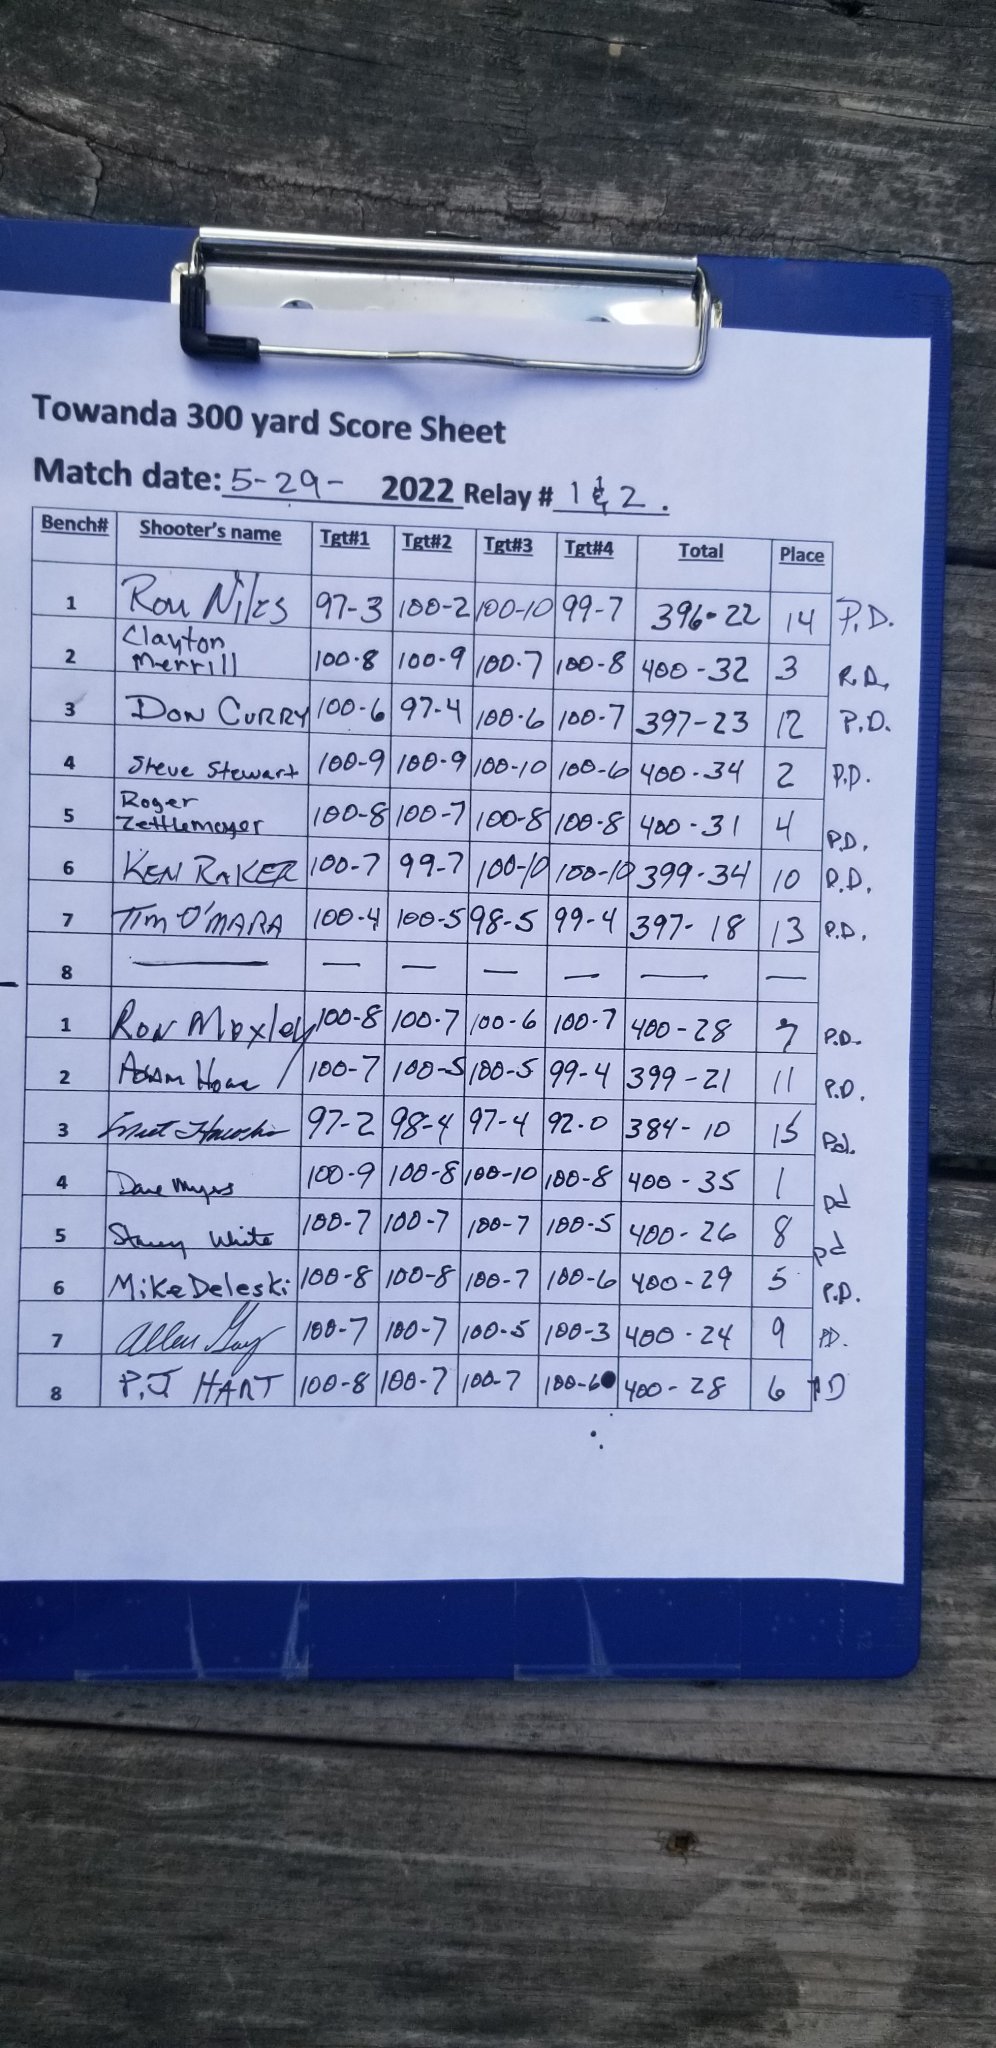 Towanda 300 yard Score Sheet
Match date: 5-29- 2022 Relay # 1 & 2.
Bench# Shooter's name Tgt#1 Tgt#2 Tgt#3 Tgt#4 Total Place
1 Ron Niles 97-3 100-2 100-10 99-7 396-22 14 P.D.
2 Clayton Merrill 100-8 100-9 100-7 100-8 400-32 3 P.D.
3 DON CURRY 100-6 97-4 100-6 100-7 397-23 12 P.D.
4 Steve Stewart 100-9 100-9 100-10 100-6 400-34 2 P.D.
5 Roger Zettlemoyer 100-8 100-7 100-8 100-8 400-31 4 P.D.
6 KEN RAKER 100-7 99-7 100-10 100-10 399-34 10 P.D.
7 TIM O'MARA 100-4 100-5 98-5 99-4 397-18 13 P.D.
8 — — — — — — —
1 RON Moxley 100-8 100-7 100-6 100-7 400-28 7 P.D.
2 ADAM 100-7 100-5 100-5 99-4 399-21 11 P.D.
3 97-2 98-4 97-4 92-0 384-10 15 Pd.
4 Dave Myers 100-9 100-8 100-10 100-8 400-35 1 pd
5 White 100-7 100-7 100-7 100-5 400-26 8 pd
6 Mike Deleski 100-8 100-8 100-7 100-6 400-29 5 P.D.
7 Allen Gay 100-7 100-7 100-5 100-3 400-24 9 PD.
8 P.J HART 100-8 100-7 100-7 100-6 400-28 6 PD